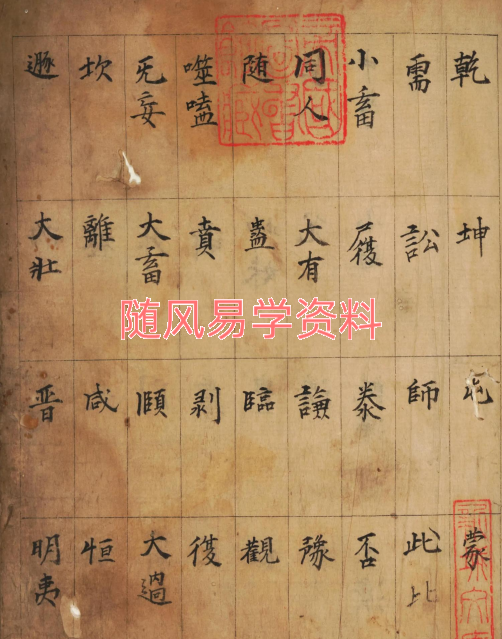 乾
坤
屯
蒙
需
訟
師
此
比
小畜
履
泰
否
同人
大有
謙
豫
随
蠱
臨
觀
噬嗑
賁
剥
復
无妄
大畜
頤
大過
坎
離
咸
恒
遯
大壯
晋
明夷
随风易学资料